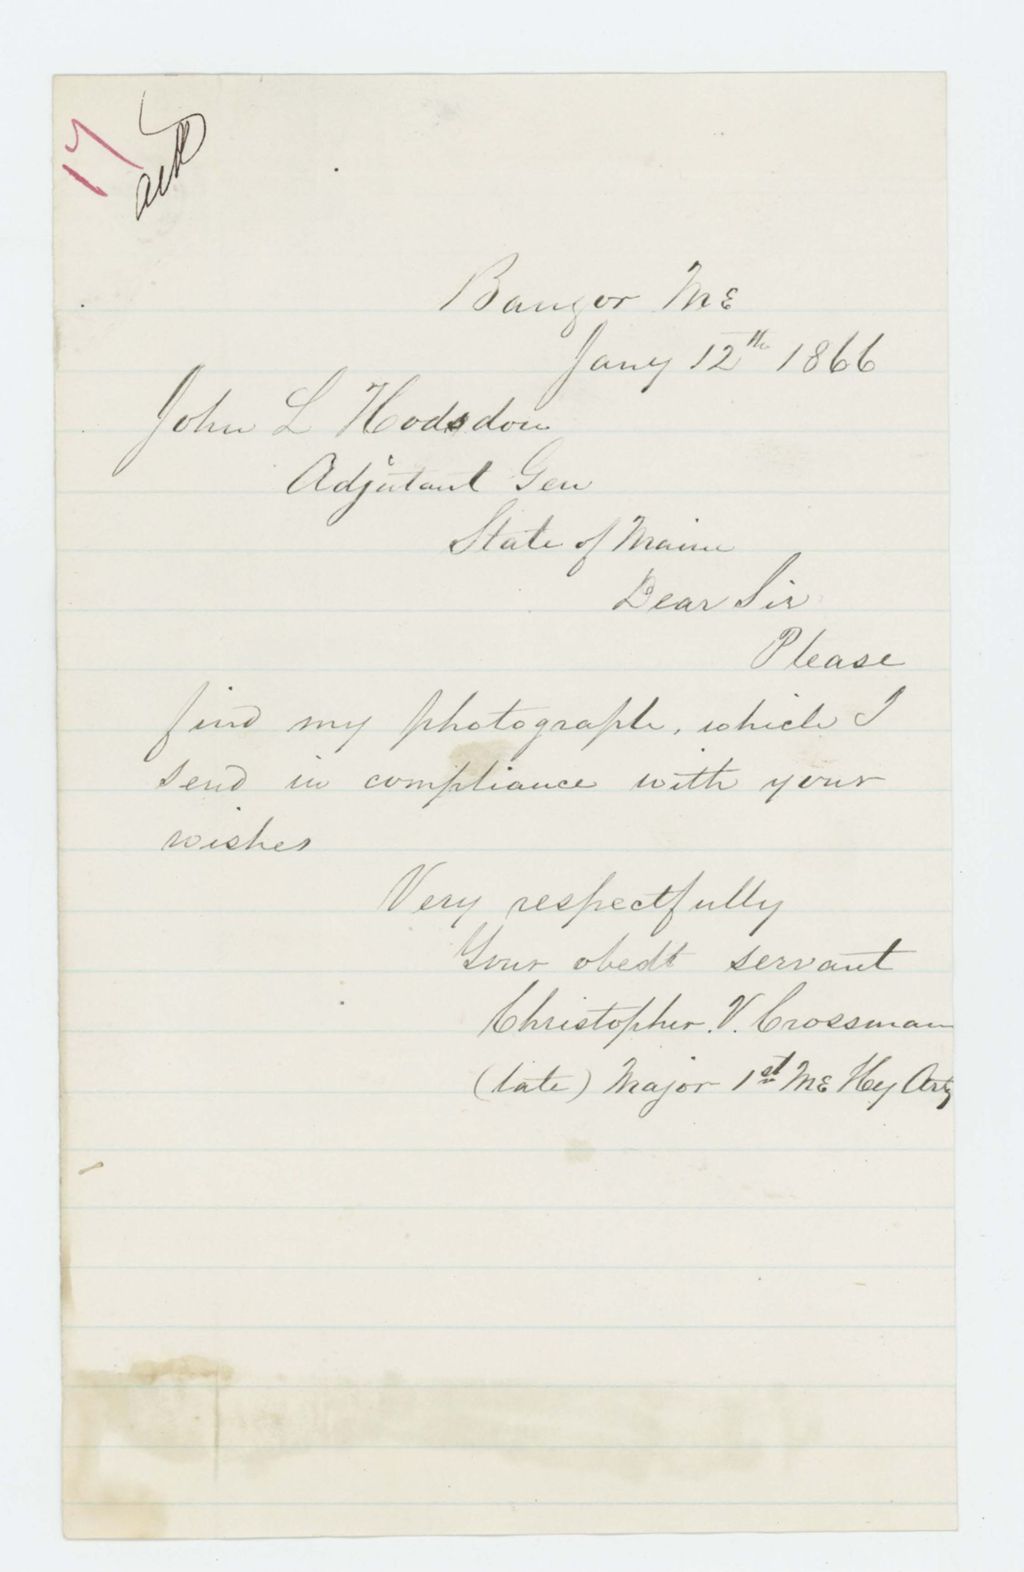 17
Bangor Me
Jany 12th 1866
John L Hodsdon
Adjutant Gen
State of Maine
Dear Sir
Please
find my photograph, which I
send in compliance with your
wishes
Very respectfully
Your obedt servant
Christopher V. Crossman
(late) Major 1st Me Hy Arty